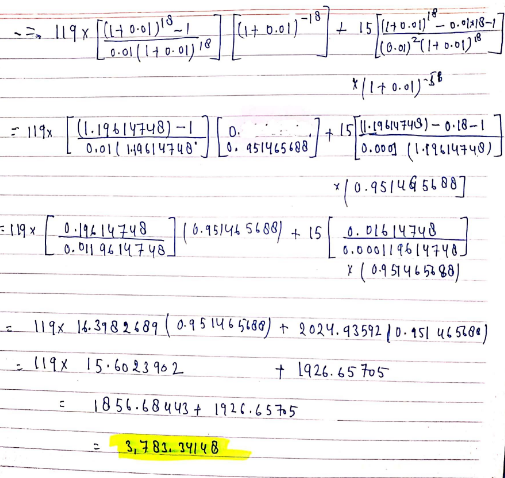 ~ =, 119 x [(1+0.01)^18 - 1 / 0.01(1+0.01)^18] [(1+0.01)^-18] + 15 [(1+0.01)^18 - 0.01x18-1 / (0.01)^2 (1+0.01)^18]
x (1+0.01)^-58
= 119x [(1.19614748) - 1 / 0.01(1.19614748] [0. 0.951465688] + 15 [(1.19614748) - 0.18-1 / 0.0001 (1.19614748)]
x [0.951465688]
= 119 x [0.19614748 / 0.0119614748] (0.951465688) + 15 [0.01614748 / 0.000119614748]
x (0.951465688)
= 119x 16.3982689 (0.951465688) + 2024.93592 (0.951465688)
= 119x 15.6023902 + 1926.65705
= 1856.68443 + 1926.65705
= 3,783.34148